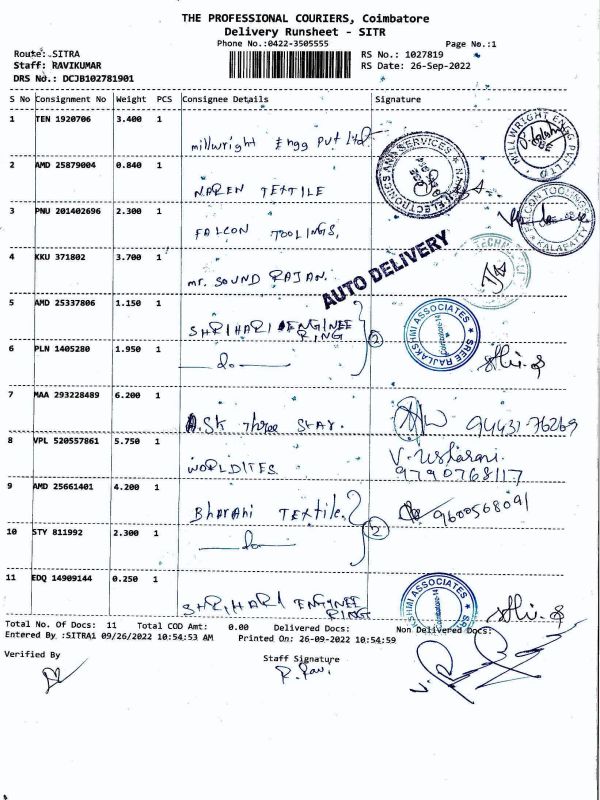 THE PROFESSIONAL COURIERS, Coimbatore
Delivery Runsheet - SITR
Phone No.:0422-3505555
Page No.:1
Route: SITRA
RS No.: 1027819
Staff: RAVIKUMAR
RS Date: 26-Sep-2022
DRS No.: DCJB102781901
S No Consignment No Weight PCS Consignee Details Signature
1 TEN 1920706 3.400 1 millwright Engg Pvt Ltd
MILLWRIGHT ENGG PVT LTD CBE
ELECTRONICS AND SERVICES
2 AMD 25879004 0.840 1 NAREN TEXTILE
3 PNU 201402696 2.300 1 FALCON TOOLINGS,
FALCON TOOLINGS KALAPATTY
4 KKU 371802 3.700 1 mr. SOUND RAJAN.
AUTO DELIVERY
5 AMD 25337806 1.150 1 SHRIHARI ENGINEE
RING
2
SREE RAJLAKSHMI ASSOCIATES Coimbatore-14
6 PLN 1405280 1.950 1 —do—
7 MAA 293228489 6.200 1 A.SK Three Star. 94431-76269
8 VPL 520557861 5.750 1 WORLDITES
9790768117
9 AMD 25661401 4.200 1 Bharani TEXTILE. 9600568091
2
10 STY 811992 2.300 1 —do—
11 EDQ 14909144 0.250 1 SHRIHARI ENGINEE
RING
ASSOCIATES
Total No. Of Docs: 11 Total COD Amt: 0.00 Delivered Docs: Non Delivered Docs:
Entered By :SITRA1 09/26/2022 10:54:53 AM Printed On: 26-09-2022 10:54:59
Verified By
Staff Signature
R. Ravi